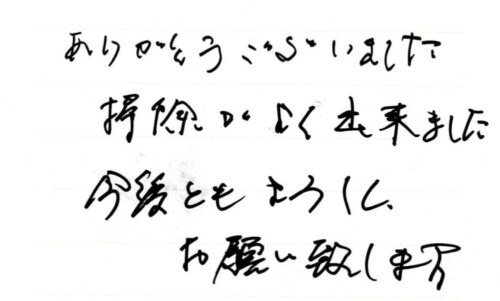 ありがとうございました
掃除がよく出来ました
今後ともよろしく
お願い致します